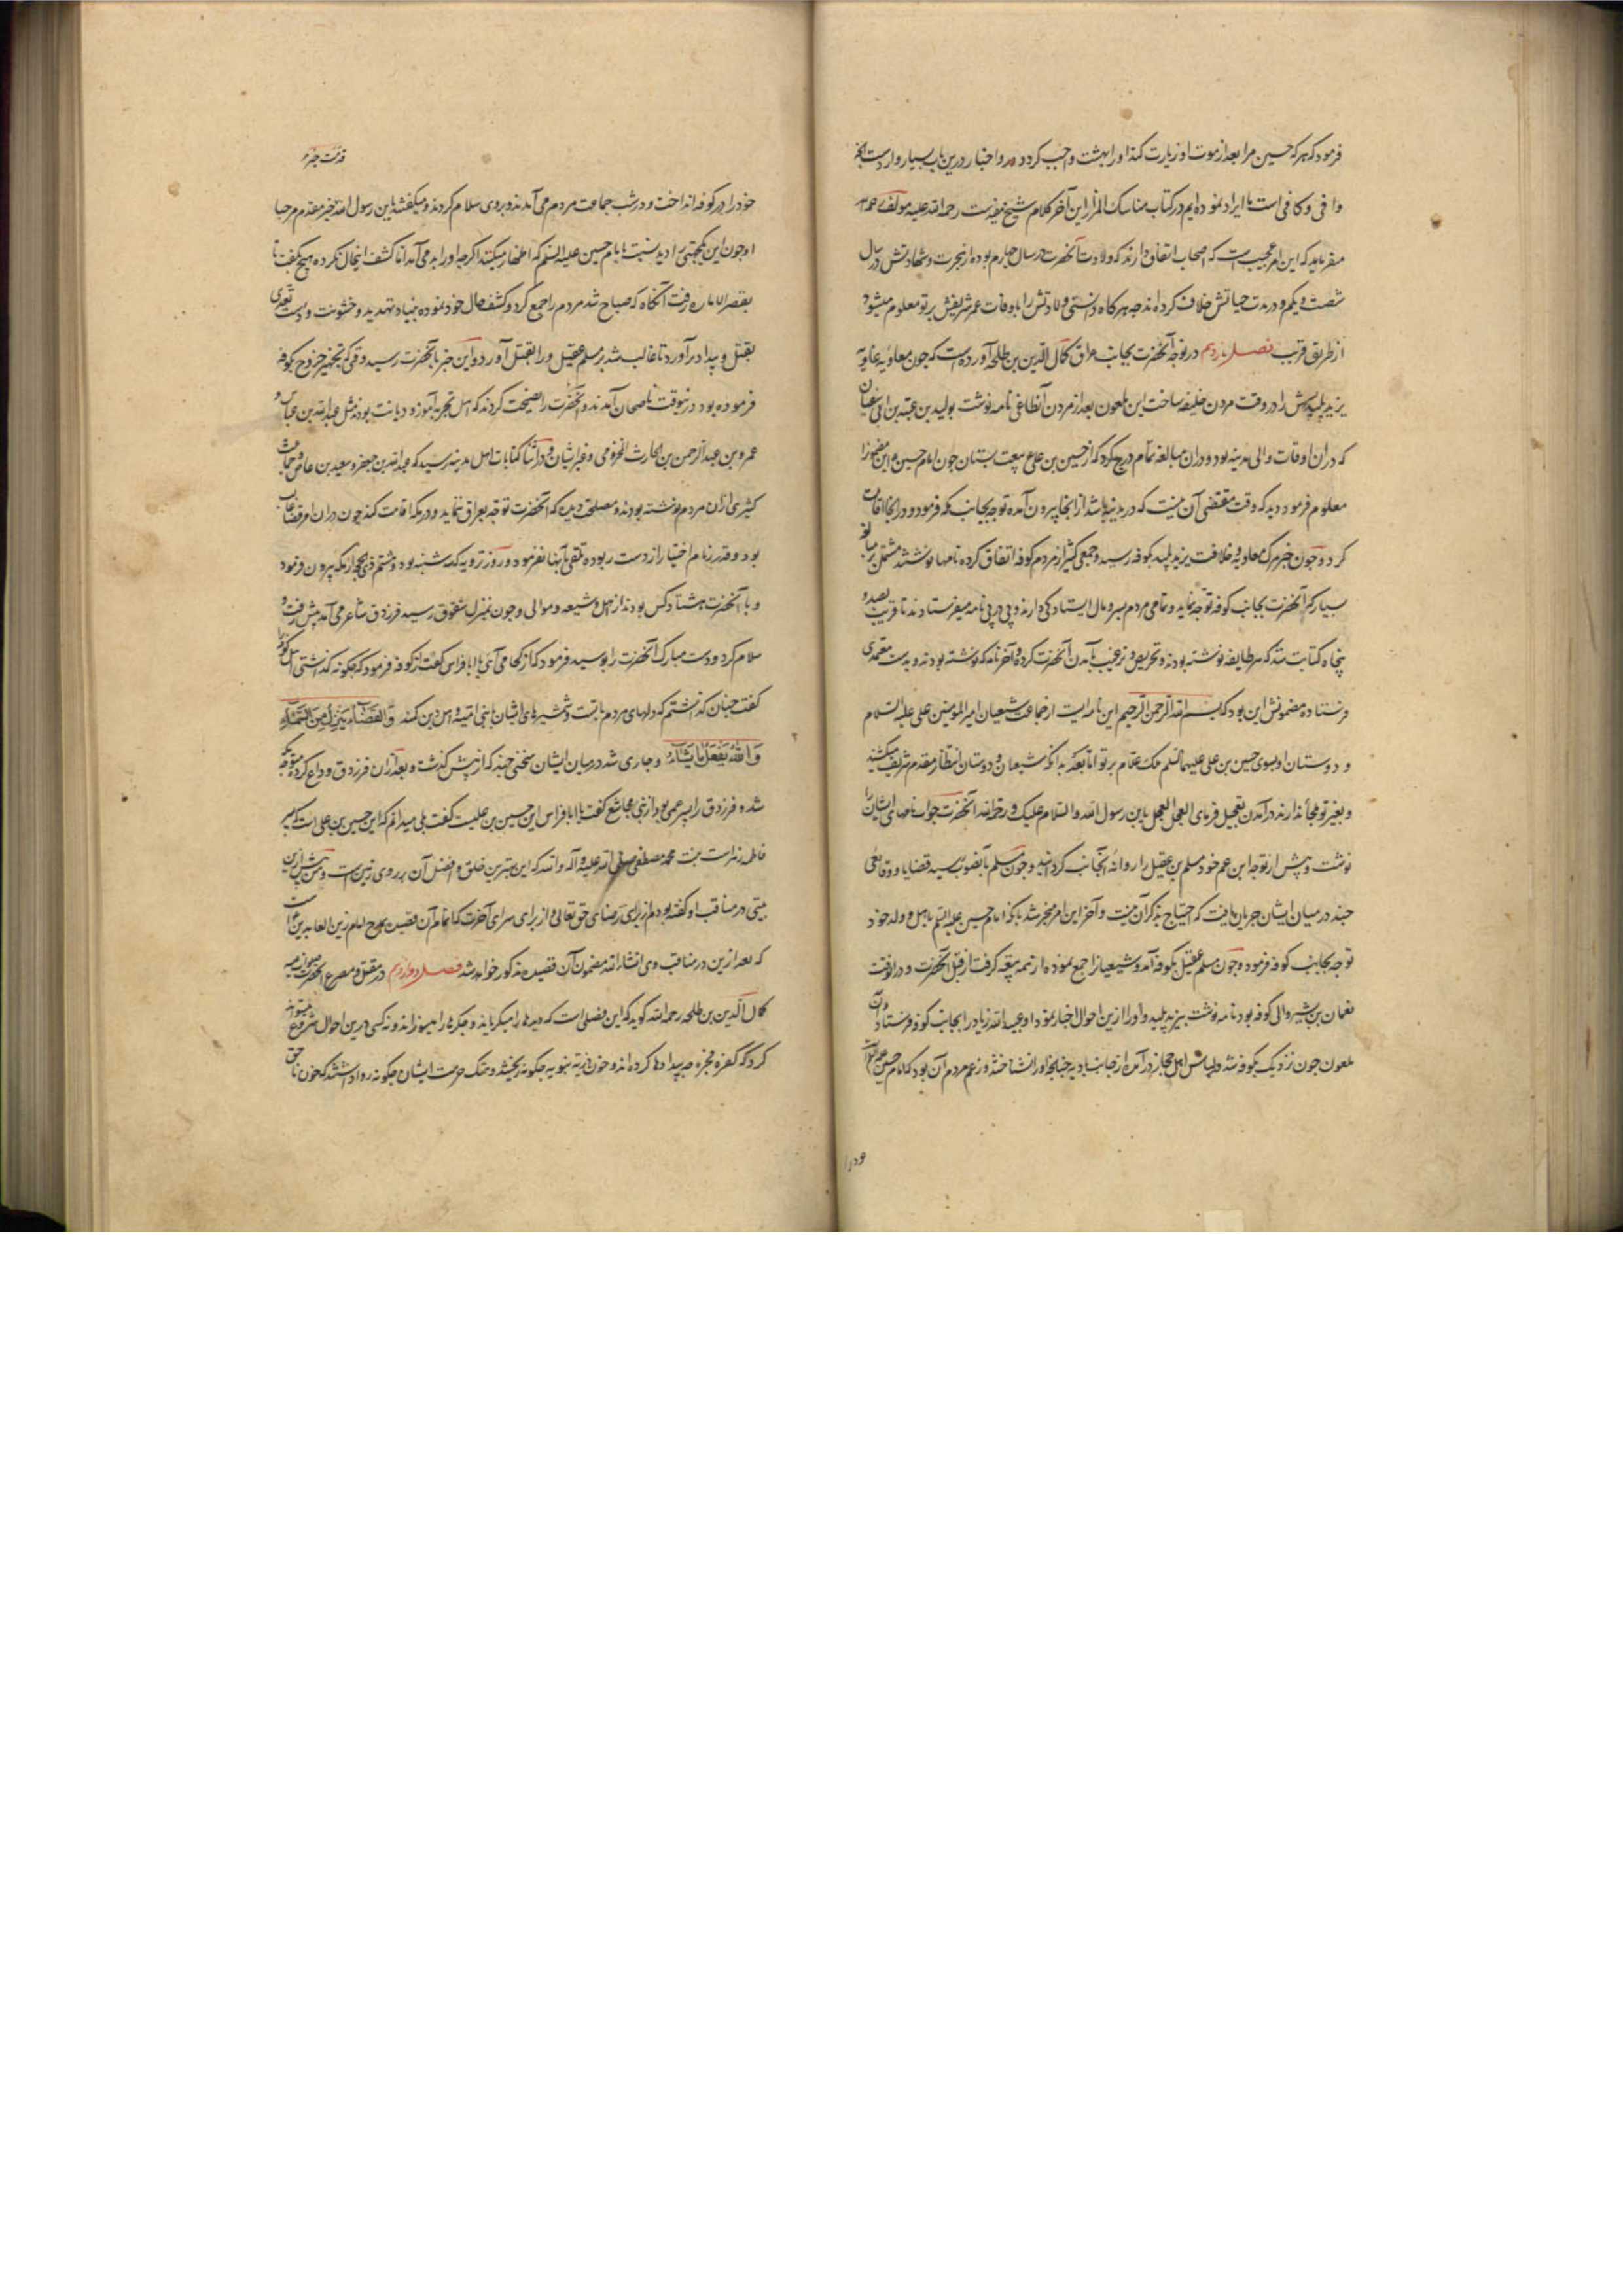 فرمود که هر که حسین مرا بعد از موت او زیارت کند او را بهشت واجب کردد و اخبار درین باب بسیار وارد است
وافی و کافی است ما ایراد نموده ایم در کتاب مناسک المزار این آخر کلام شیخ مفید است رحمه الله علیه مولف
میفرماید که این امر عجیب است که اصحاب اتفاق دارند که ولادت آنحضرت در سال چهارم بوده از هجرت و شهادتش در سال
شصت و یکم و در مدت حیاتش خلاف کرده اند چه هرکاه دانستی ولادتش را با وفات عمر شریفش بر تو معلوم میشود
از طریق قرب فصل یازدهم در توجه آنحضرت بجانب عراق کمال الدین بن طلحه آورده است که چون معاویه
یزید پلیدش را در وقت مردن خلیفه ساخت این ملعون بعد از مردن آن طاغی نامه نوشت بولید بن عتبه بن ابی سفیان
که در ان اوقات والی مدینه بود و دران مبالغه تمام درج کرد که از حسین بن علی ع بیعت بستان چون امام حسین ع این
معلوم فرمود دید که وقت مقتضی آن نیست که در مدینه باشد از انجا بیرون آمده توجه بجانب مکه فرمود و در انجا اقامت
کرد و چون خبر مرک معاویه و خلافت یزید پلید بکوفه رسید و جمعی کثیر از مردم کوفه اتفاق کرده نامها نوشتند مشتمل بر مبالغه
بسیار که آنحضرت بجانب کوفه توجه نماید و تمامی مردم بسر و مال ایستادکی دارند و پی در پی نامه میفرستادند تا قریب بصد و
پنجاه کتابت شد که هر طایفه نوشته بودند و تحریص و ترغیب بآمدن آنحضرت کرده و آخر نامه که نوشته بودند و بدست معتمدی
فرستاده مضمونش این بود که بسم الله الرحمن الرحیم این نامه ایست از جماعت شیعیان امیر المومنین علی علیه السلام
و دوستان او بسوی حسین بن علی علیهما السلم سلام برتو اما بعد بدانکه شیعیان و دوستان انتظار مقدم شریف میکشند
و بغیر تو ملجأ ندارند در آمدن تعجیل فرمای العجل العجل یا بن رسول الله والسلام علیک و رحمة الله آنحضرت جواب نامهای ایشان را
نوشت و پیش از توجه ابن عم خود مسلم بن عقیل را روانه آنجانب کردانید و چون مسلم بآنصوب رسید قضایا و وقایعی
چند در میان ایشان جریان یافت که احتیاج بذکر آن نیست و آخر این امر منجر شد بانکه امام حسین علیه السلم باهل و ولد خود
توجه بجانب کوفه فرمود و چون مسلم عقیل بکوفه آمد و شیعیانرا جمع نموده از همه بیعت کرفت از قبل آنحضرت و در انوقت
نعمان بن بشیر والی کوفه بود نامه نوشت بیزید پلید و او را ازین احوال اخبار نمود او عبید الله زیاد را بجانب کوفه فرستاد و آن
ملعون چون نزدیک بکوفه شد و لباس اهل حجاز در آمده از جانب بادیه چنانچه او را نشناختند و زعم مردم آن بود که امام حسین علیه السلام
خود را در کوفه انداخت و در شب جماعت مردم می آمدند و بروی سلام کردند و میکفتند یا بن رسول الله خیر مقدم مرحبا
او چون این یکجهتی را دید نسبت بامام حسین علیه السلم که اظهار میکنند اکرچه او را بد می آمد اما کشف این حال نکرده هیچ نکفت تا
بقصر الاماره رفت آنکاه که صباح شد مردم را جمع کرد و کشف حال خود نموده بنیاد تهدید و خشونت و دست تعدی
بقتل و بیداد بر آورد تا غالب شد بر مسلم عقیل و را بقتل آورد و این خبر بآنحضرت رسید وقتی که تجهیز خروج بکوفه
فرموده بود درینوقت ناصحان آمدند و آنحضرت را نصیحت کردند که اهل تجربه آموز و دیانت بودند مثل عبد الله بن عباس و
عمرو بن عبد الرحمن بن الحارث المخزومی و غیر ایشان و در اثنا کتابات اهل مدینه رسید که عبد الله بن جعفر و سعید بن عاص و جماعت
کثیری از ان مردم نوشته بودند و مصلحت دیده که آنحضرت توجه بعراق ننماید و در مکه اقامت کند چون دران امر قضا غالب
بود و قدر زمام اختیار از دست ربوده تلقی بآنها نفرمود و روز ترویه که سه شنبه بود و هشتم ذی الحجه از مکه بیرون فرمود
و با آنحضرت هشتاد کس بودند از اهل و شیعه و موالی و چون بمنزل شقوق رسید فرزدق شاعر می آمد پیش رفت و
سلام کرد و دست مبارک آنحضرت را بوسید فرمود که از کجا می آی یا ابا فراس کفت از کوفه فرمود که چکونه کذاشتی اهل کوفه را
کفت چنان کذاشتم که دلهای مردم با تست و شمشیرهای ایشان با بنی امیه و اهل دین کمند وَ الْقَضَاءُ یَنْزِلُ مِنَ السَّمَاءِ
وَ اللهُ یَفْعَلُ مَا یَشَاءُ و جاری شد در میان ایشان سخنی چند که از پیش کذشت و بعد ازان فرزدق وداع کرده متوجه مکه
شد و فرزدق را پسر عمی بود از بنی مجاشع کفت یا ابا فراس این حسین بن علیست کفت بلی میدانم که این حسین بن علی است که پسر
فاطمه زهراست بنت محمد مصطفی صلی الله علیه و آله والله که این بهترین خلق و افضل آن بر روی زمین است و من پیش ازین
بیتی در مناقب او کفته بودم از برای رضای حق تعالی و از برای سرای آخرت که اتمام آن قصیده بمدح امام زین العابدین است
که بعد ازین در مناقب وی انشاء الله مضمون آن قصیده مذکور خواهد شد فصل دوازدهم در مقتل و مصرع آنحضرت
کمال الدین بن طلحه رحمه الله کوید که این فصلی است که دیدها را میکریاند و جکرها را میسوزاند و نه کسی درین احوال شروع میتواند
کرد که کفره فجره چه بیدادها کرده اند و خون ذریه نبویه چکونه ریختند و هتک حرمت ایشان چکونه روا داشتند که خون ناحق